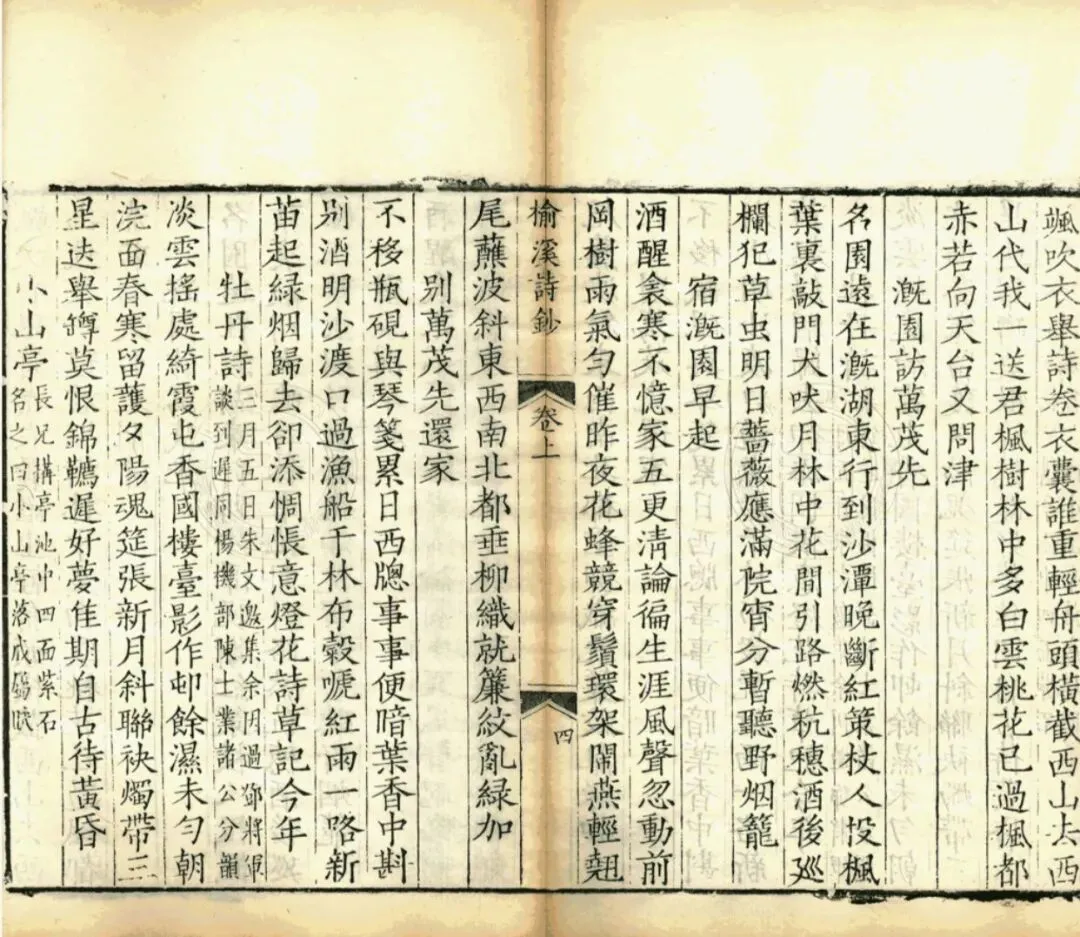 颯吹衣舉詩卷衣囊誰重輕舟頭橫截西山去西
山代我一送君楓樹林中多白雲桃花已過楓都
赤若向天台又問津
漑園訪萬茂先
名園遠在漑湖東行到沙潭晚斷紅策杖人投楓
葉裏敲門犬吠月林中花間引路燃杭穗酒後巡
欄犯草虫明日薔薇應滿院宵分暫聽野烟籠
宿漑園早起
酒醒衾寒不憶家五更清論徧生涯風聲忽動前
岡樹雨氣勻催昨夜花蜂競穿鬚環架鬧燕輕翹
榆溪詩鈔
卷上
四
尾蘸波斜東西南北都垂柳織就簾紋亂綠加
別萬茂先還家
不移瓶硯與琴箋累日西牕事事便暗葉香中斟
別酒明沙渡口過漁船千林布穀嗁紅雨一路新
苗起綠烟歸去卻添惆悵意燈花詩草記今年
牡丹詩
三月五日朱文邀集余因過鄧將軍
談到遲同楊機部陳士業諸公分韻
淡雲搖處綺霞屯香國樓臺影作邨餘濕未勻朝
浣面春寒留護夕陽魂筵張新月斜聯袂燭帶三
星迭舉罇莫恨錦韉遲好夢佳期自古待黃昏
小山亭
長兄構亭池中四面紫石
名之曰小山亭落成鷁賦